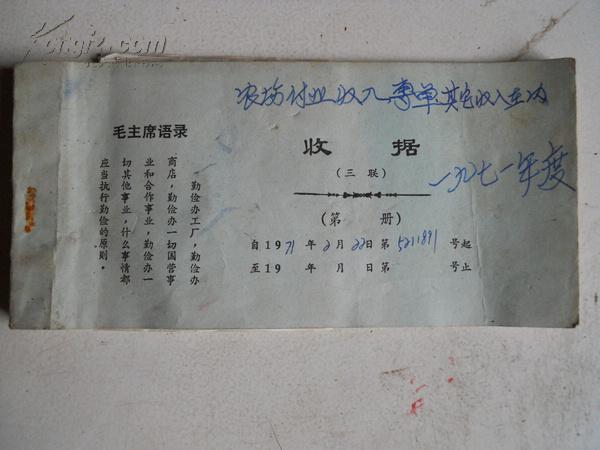 农场付业收入专单其它收入在内
毛主席语录
勤俭办工厂，勤俭办
商店，勤俭办一切国营事
业和合作事业，勤俭办一
切其他事业，什么事情都
应当执行勤俭的原则。
收据
（三联）
一九七一年度
（第 册）
自1971年2月22日第5211891号起
至19 年 月 日第 号止